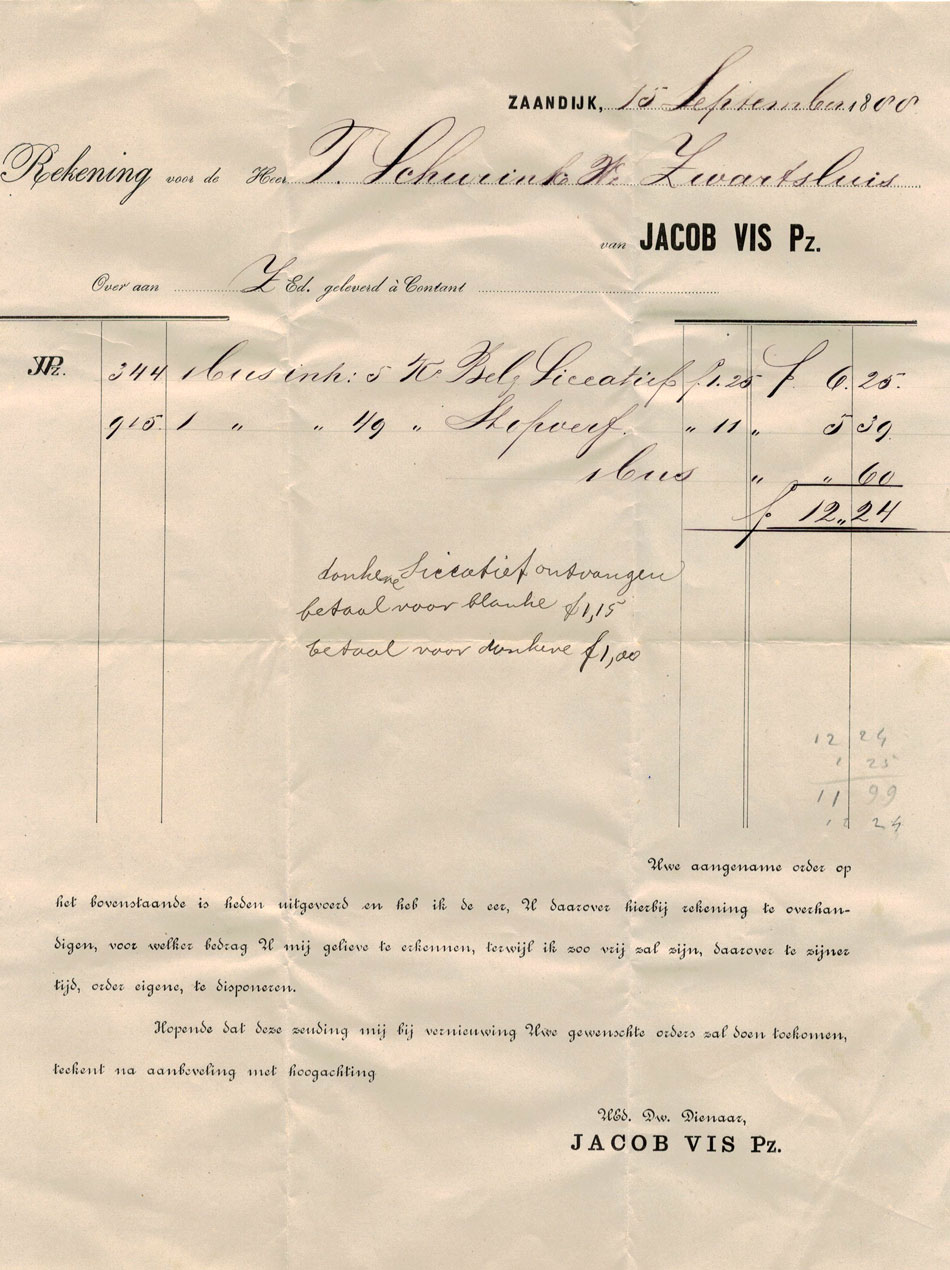 ZAANDIJK, 15 September 1888
Rekening voor de Heer T. Schurink Zwartsluis
van JACOB VIS Pz.
Over aan Z Ed. geleverd à Contant
JVPz. 344 1 bus inh: 5 K Belg Siccatief f 1.25 f 6.25.
915 1 " " 49 " Stopverf. " 11 " 5 39
1 bus " " 60
f 12,,24
donkere Siccatief ontvangen
betaal voor blanke f 1,15
betaal voor donkere f 1,00
12 24
1 25
11 99
24
Uwe aangename order op
het bovenstaande is heden uitgevoerd en heb ik de eer, U daarover hierbij rekening te overhan-
digen, voor welker bedrag U mij gelieve te erkennen, terwijl ik zoo vrij zal zijn, daarover te zijner
tijd, order eigene, te disponeren.
Hopende dat deze zending mij bij vernieuwing Uwe gewenschte orders zal doen toekomen,
teekent na aanbeveling met hoogachting
UEd. Dw. Dienaar,
JACOB VIS Pz.